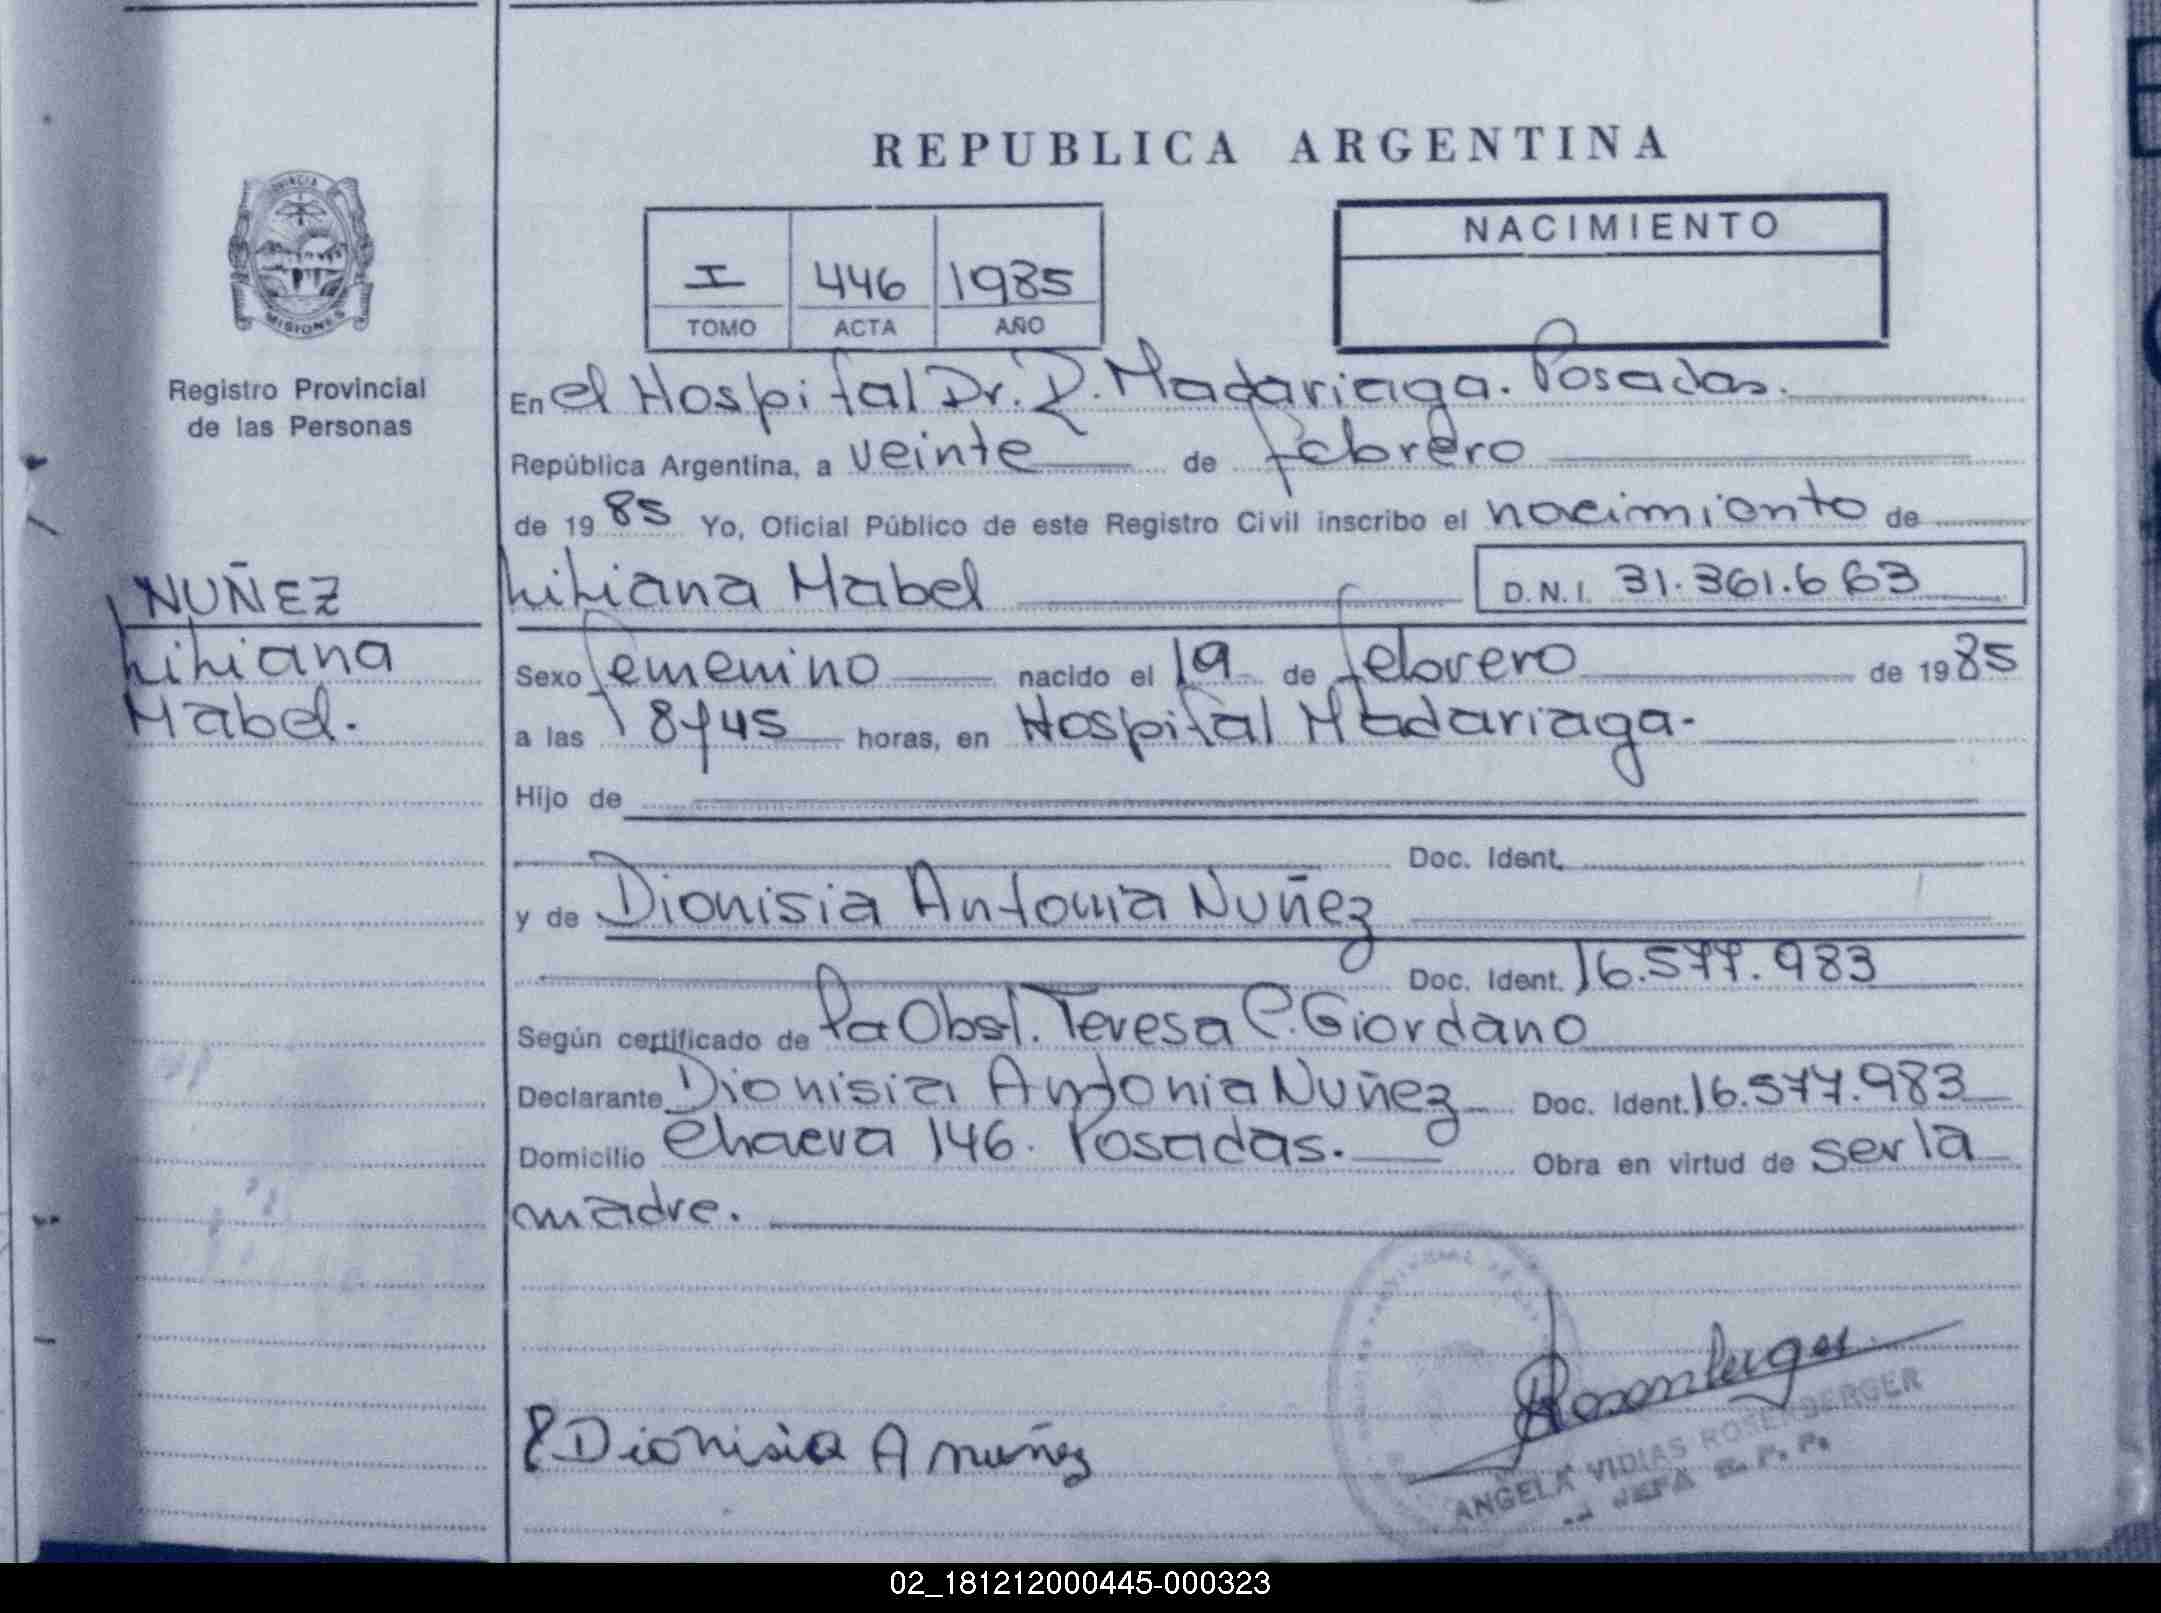 REPUBLICA ARGENTINA
NACIMIENTO
I 446 1985
TOMO ACTA AÑO
PROVINCIA
MISIONES
Registro Provincial
de las Personas
NUÑEZ
Liliana
Mabel.
En el Hospital Dr. R. Madariaga. Posadas.
República Argentina, a veinte de febrero
de 1985 Yo, Oficial Público de este Registro Civil inscribo el nacimiento de
Liliana Mabel D.N.I. 31.361.663
Sexo femenino nacido el 19 de febrero de 1985
a las 18y45 horas, en Hospital Madariaga.
Hijo de
Doc. Ident.
y de Dionisia Antonia Nuñez
Doc. Ident. 16.577.983
Según certificado de la Obst. Teresa C. Giordano
Declarante Dionisia Antonia Nuñez Doc. Ident. 16.577.983
Domicilio 146. Posadas. Obra en virtud de ser la
madre.
Dionisia A nuñez
Rosenberger
ANGELA VIDIAS ROSENBERGER
JEFA R. P. P.
02_181212000445-000323